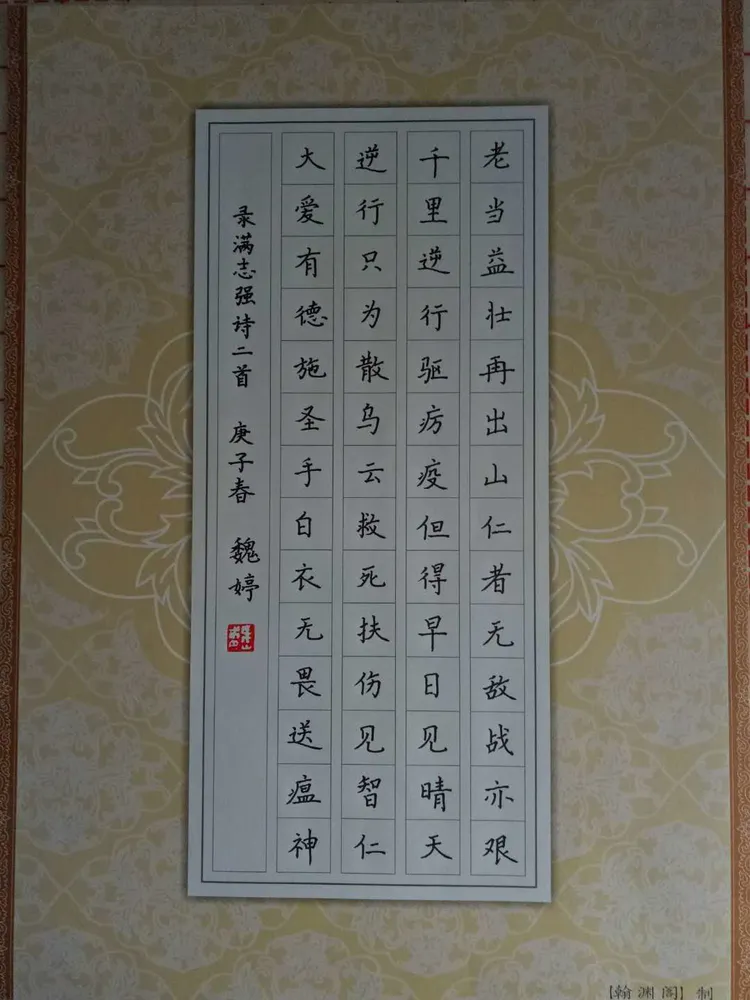 老当益壮再出山仁者无敌战亦艰
千里逆行驱疠疫但得早日见晴天
逆行只为散乌云救死扶伤见智仁
大爱有德施圣手白衣无畏送瘟神
录满志强诗二首 庚子春 魏婷
【翰渊阁】制